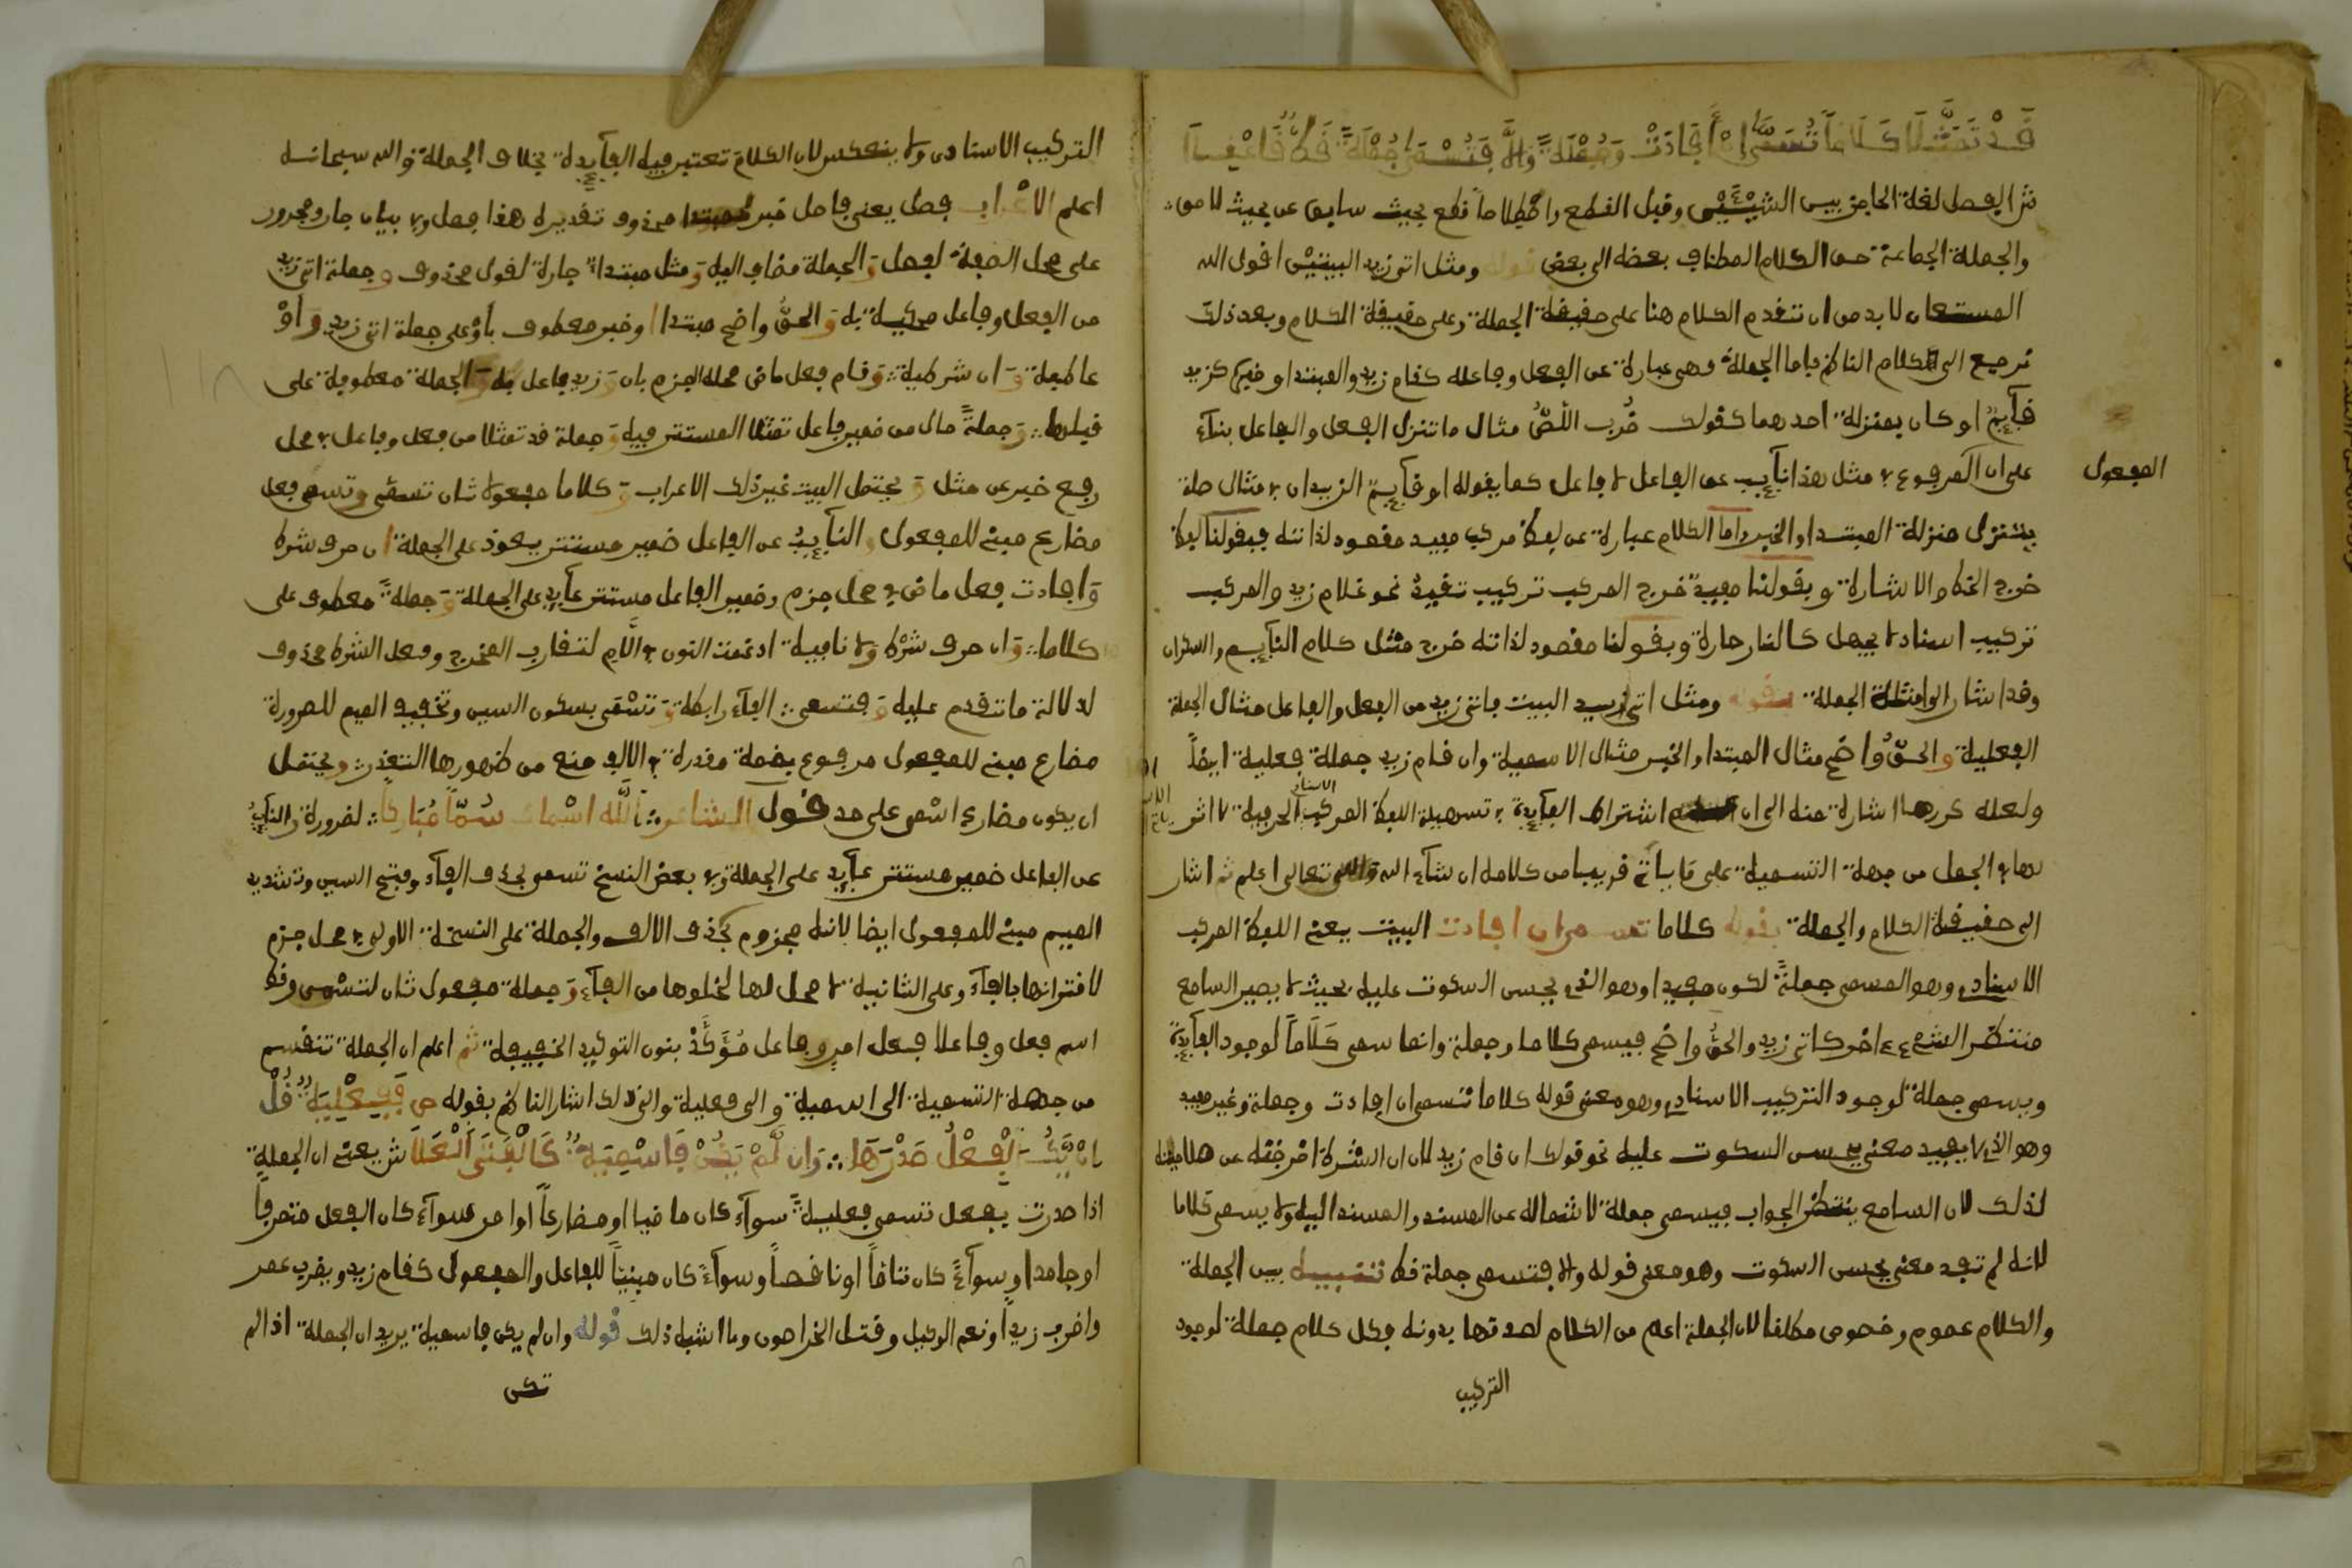 قَدْ تَمَثَّلَا كَلَامًا تُسَمَّى إنْ أَفَادَتْ وَجُمْلَةً وَإلَّا فَتُسْمَى جُمْلَةً فَطُّ فَاعْقِلَا
ش الفصل لغة الحاجز بين الشيئين وقيل القطع واصطلاحا قطع بحيث سابق عن بحيث لاحق
والجملة الجماعة من الكلام المضاف بعضه الى بعض قوله ومثل اتى زيد البيتين اقول الله
المستعان لابد من ان نتقدم الكلام هنا على حقيقة الجملة وعلى حقيقة الكلام وبعد ذلك
نرجع الى الكلام الناظم فاما الجملة فهى عبارة عن الفعل وفاعله كقام زيد والمبتدا وخبره كزيد
قآئم او كان بمنزلة احدهما كقولك ضُرب اللصُّ مثال ما تنزل الفعل والفاعل بنآء
المفعول
على ان المرفوع في مثل هذا نآئب عن الفاعل لا فاعل كما يقوله او قآئم الزيدان في مثال صلة
يتنزل منزلة المبتدا والخبر واما الكلام عبارة عن لفظ مركب مفيد مقصود لذاته فبقولنا لفظ
خرج الخط والاشارة وبقولنا مفيد خرج المركب تركيب تقييد نحو غلام زيد والمركب
تركيب اسناد لا يجهل كالنار حارة وبقولنا مقصود لذاته خرج مثل كلام النآئم والسكران
وقد اشار الى امثلة الجملة بقوله ومثل اتى زيد البيت فاتى زيد من الفعل والفاعل مثال الجملة
الفعلية والحقّ واضح مثال المبتدا والخبر مثال الاسمية وان قام زيد جملة فعلية ايضاً
ولعله كررها اشارة منه الى ان اشتراط الفآئدة في تسمية اللفظ المركب الاسنادي الحرفية لا اثر
لها في الجمل من جهة التسمية على ما ياتي قريبا من كلامه ان شآء الله والله تعالى اعلم ثم اشار
الى حقيقة الكلام والجملة بقوله كلاما تسمى ان افادت البيت يعنى اللفظ المركب
الاسنادى وهو المسمى جملةً لكون مفيدا وهو الذى يحسن السكوت عليه بحيث لا يصير السامع
منتظر الشىء ءاخر كاتى زيد والحقُّ واضح فيسمى كلاما وجملة وانما سمى كَلَامًا لوجود الفآئدة
ويسمى جملة لوجود التركيب الاسنادى وهو معنى قوله كلاما تسمى ان افادت وجملة وغير مفيد
وهو الذى لا يفيد معنى يحسن السكوت عليه نحو قولك ان قام زيد لان ان الشرط اخرجته عن صلاحيته
لذلك لان السامع ينتظر الجواب فيسمى جملة لاشتماله عن المسند والمسند اليه ولا يسمى كلاما
لانه لم تفد معنى يحسن السكوت وهو معنى قوله والا فتسمى جملة فط تنبيه بين الجملة
والكلام عموم وخصوص مطلقا لان الجملة اعم من الكلام لصدقها بدونه فكل كلام جملة لوجود
التركيب
التركيب الاسنادى ولا ينعكس لان الكلام تعتبر فيه الفآئدة بخلاف الجملة والله سبحانه
اعلم الاعراب فصل يعنى فاصل خبر لمبتدا محذوف تقديره هذا فصل وفي بيان جار ومجرور
على محل الصفة لفصل وَالجملة مضاف اليه وَمثل مبتدا جارة لقول محذوف وجملة اتى زيد
من الفعل وفاعل محكية به وَالحقُّ واضح مبتدا وخبر معطوف بأو على جملة اتى زيد وَاوْ
عاطفة وَان شرطية وَقام فعل ماض محله الجزم بان وَزيد فاعل به وَالجملة معطوفة على
قبلها وَجملةً حال من ضمير فاعل تمثلا المستتر فيه وَجملة قد تمثلا من فعل وفاعل في محل
رفع خبر عن مثل وَيحتمل البيت غير ذلك الاعراب وَكلاما مفعولا ثان تسمى وتسمى فعل
مضارع مبنى للمفعول والنآئبُ عن الفاعل ضمير مستتر يعود على الجملة ان حرف شرط
وَافادت فعل ماض في محل جزم وضمير الفاعل مستتر عآئد على الجملة وَجملةً معطوف على
كلاما وَان حرف شرط ولا نافية ادغمت النون في اللام لتقارب المخرج وفعل الشرط محذوف
لدلالة ما تقدم عليه وَفتسمى الفآء رابطة وَتسْمى بسكون السين وتخفيف الميم للضرورة
مضارع مبنى للمفعول مرفوع بضمة مقدرة في الالف منع من ظهورها التعذر ويحتمل
ان يكون مضارع اسْمى على حد قول الشاعر اللّه اسْماك سُمًّا مُبَاركاً لضرورة والنآئبُ
عن الفاعل ضمير مستتر عآئد على الجملة وفي بعض النسخ تسمو بحذف الفآء وفتح السين وتشديد
الميم مبنى للمفعول ايضا لانه مجزوم بحذف الالف والجملة على النسخة الاولى في محل جزم
لاقترانها بالفآء وعلى الثانية لا محل لها لخلوها من الفآء وَجملة مفعول ثان لتسْمى وفط
اسم فعل وفاعلا فعل امر وفاعل مُؤَكَّدْ بنون التوكيد الخفيفة ثم اعلم ان الجملة تنقسم
من جهة التسمية الى اسمية والى فعلية والى ذلك اشار الناظم بقوله ص فَفِعْلِيَةٌ قُلْ
انْ يَّكُ الْفِعْلُ صَدْرَهَا وَان لَّمْ يَكُنْ فَاسْمِيَةٌ كَالْفَتَى الْعَلَا ش يعنى ان الجملة
اذا صدرت بفعل تسمى فعليةً سوآء كان ماضيا او مضارعاً او امر سوآء كان الفعل متصرفاً
او جامدا وسوآءً كان تاماً او ناقصاً وسوآءً كان مبنيّاً للفاعل والمفعول كقام زيد ويضرب عمر
واضرب زيداً ونعم الوكيل وقتل الخراصون وما اشبه ذلك قوله وان لم يكن فاسمية يريد ان الجملة اذا لم
تكن